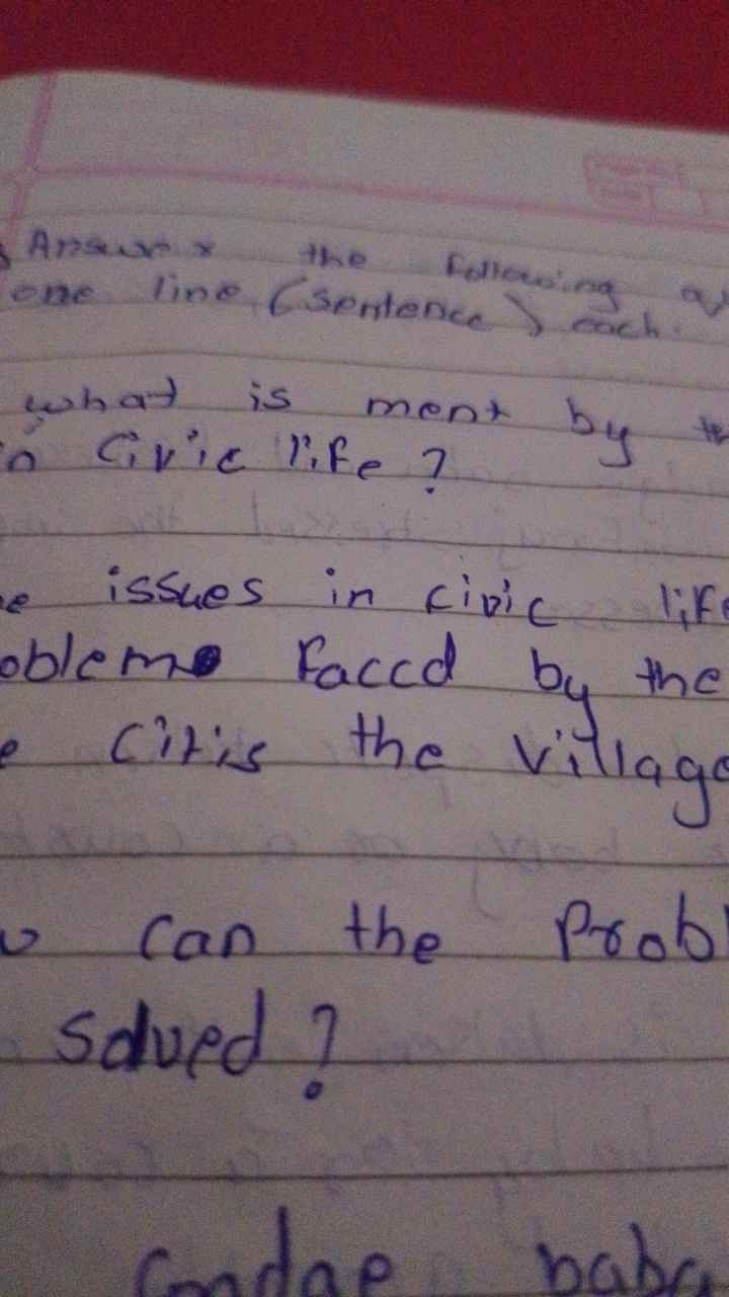 Answer the following
one line (sentence) each.
what is ment by
in Civic life?
issues in civic life
oblems Faccd by the
e Citis the village
can the Probl
solved?
baba